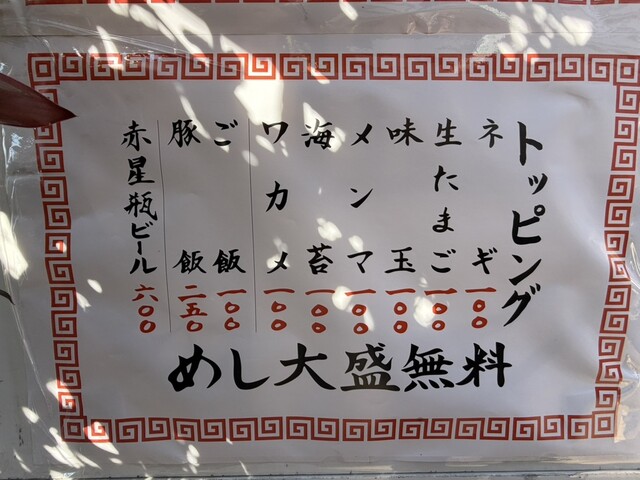 トッピング
ネギ 一〇〇
生たまご 一〇〇
味玉 一〇〇
メンマ 一〇〇
海苔 一〇〇
ワカメ 一〇〇
ご飯 一〇〇
豚飯 二五〇
赤星瓶ビール 六〇〇
めし大盛無料